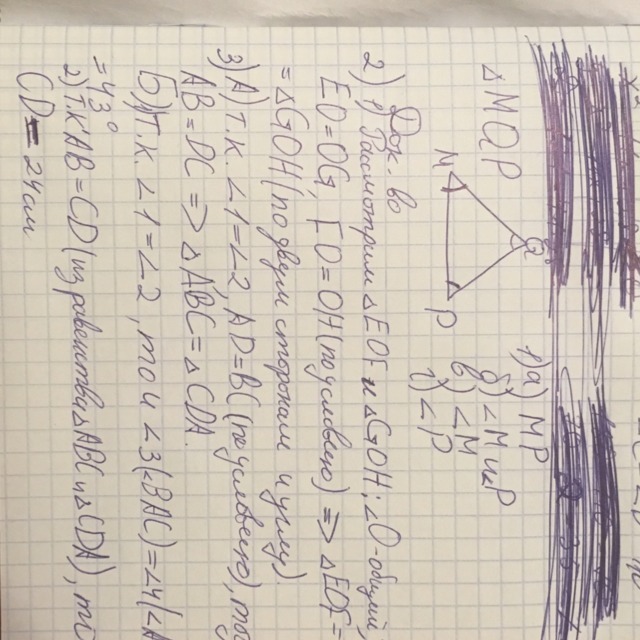 Δ MQP
Q
M
P
1) а) MP
б) ∠M и ∠P
в) ∠M
г) ∠P
Док-во
2) 1) Рассмотрим ΔEOF и ΔGOH; ∠O-общий,
EO=OG, FO=OH (по условию) => ΔEOF=
=ΔGOH (по двум сторонам и углу)
3) А) т.к. ∠1=∠2, AD=BC (по условию), то
AB=DC => ΔABC=ΔCDA.
Б) 1) т.к. ∠1=∠2, то и ∠3(∠BAC)=∠4(∠A
=43°
2) т.к AB=CD (из равенства ΔABC и ΔCDA), то
CD=24см